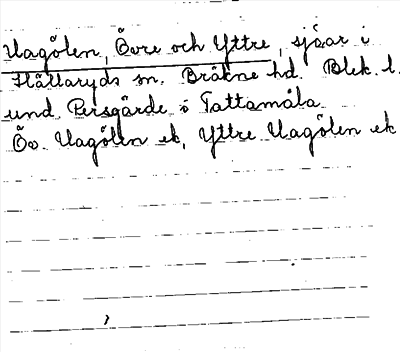 Uagölen, Övre och Yttre, sjöar i
Hällaryds sn. Bräkne hd. Blek. l.
und Persgärde o Tattamåla
Öv. Uagölen ek, Yttre Uagölen ek